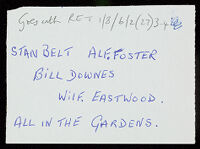 Goes with RET 1/8/6/2(27)3-4
STAN BELT ALF. FOSTER
BILL DOWNES
WILF. EASTWOOD.
ALL IN THE GARDENS.